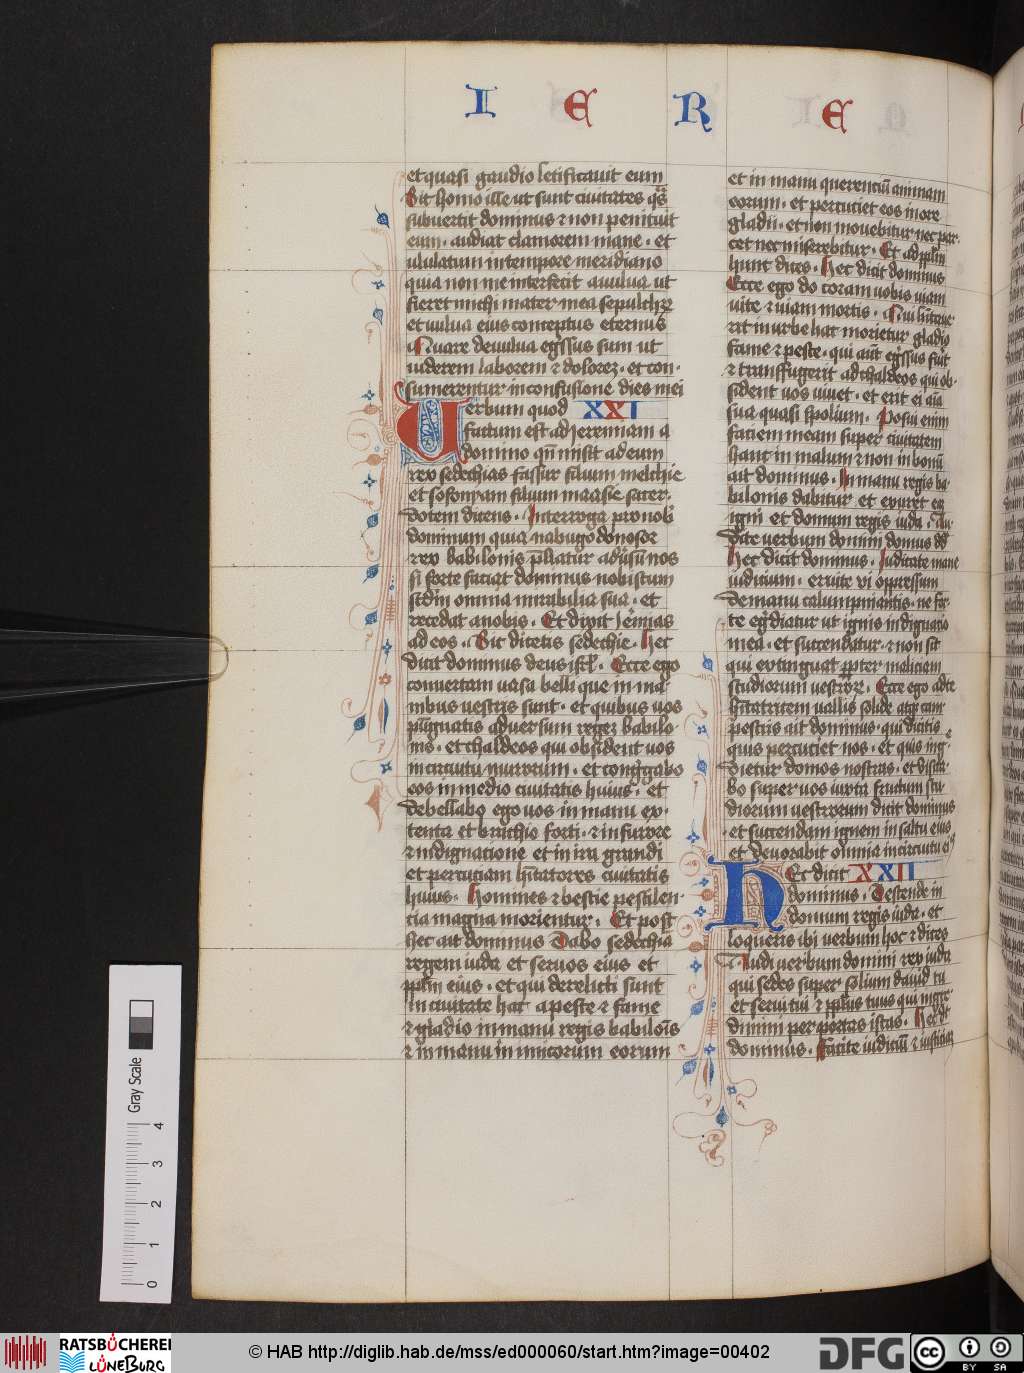 I E R E
et quasi gaudio letificauit eum
Sit homo ille ut sunt ciuitates q̄s
subuertit dominus ⁊ non penituit
eum · audiat clamorem mane · et
ululatum in tempore meridiano
quia non me interfecit a uulua ut
fieret michi mater mea sepulchrꝝ
et uulua eius conceptus eternus
Quare de uulua eg̃ssus sum ut
uiderem laborem ⁊ dolorez · et con·
sumerentur in confusione dies mei
Uerbum quod XXI
factum est ad Jeremiam a
domino qn̄ misit ad eum
rex sedechias fassur filium melchie
et sofonyam filium maasie sacer·
dotem dicens · Interroga pro nob̄
dominum quia nabugodonosor
rex babilonis p̄liatur adũsũ nos
si forte faciat dominus nobiscum
scd̄m omnia mirabilia sua · et
recedat a nobis · Et dixit Jeremias
ad eos · Sic dicetis sedechie · Hec
dicit dominus deus isrl̄ · Ecce ego
conuertam uasa belli que in ma
nibus uestris sunt · et quibus uos
pũgnatis aduersum regez babilo·
nis · et chaldeos qui obsident uos
in circuitu murorum · et congregabo
eos in medio ciuitatis huius · et
debellabo ego uos in manu ex·
tenta et brachio forti · ⁊ in furore
⁊ indignatione et in ira grandi
et percutiam hītatores ciuitatis
huius · Homines ⁊ bestie pestilen·
cia magna morientur · Et post
hec ait dominus Dabo sedechia
regem iuda et seruos eius et
ppl̄m eius · et qui derelicti sunt
in ciuitate hac a peste ⁊ fame
⁊ gladio in manu regis babilōis
⁊ in manu inimicorum eorum
et in manu querenciū animam
eorum · et percutiet eos in ore
gladii · et non mouebitur nec par·
cet nec miserebitur · Et ad ppl̄m
hunc dices · Hec dicit dominus
Ecce ego do coram uobis uiam
uite ⁊ uiam mortis · Qui hītaue
rit in urbe hac morietur gladio
fame ⁊ peste · qui aut̄ eg̃ssus fũit
⁊ transfugerit ad chaldeos qui ob·
sident uos uiuet · et erit ei aīa
sua quasi spolium · Posui enim
faciem meam super ciuitatem
hanc in malum ⁊ non in bonū
ait dominus · In manu regis ba
bilonis dabitur et exuret eā
igni et domum regis iuda · Au
dite uerbum domini domus dd̄
Hec dicit dominus · Iudicate mane
iudicium · eruite vi oppressum
de manu calumpniantis · ne for·
te eg̃diatur ut ignis indignatio
mea · et succendatur · ⁊ non sit
qui extinguat ꝓpter maliciam
studiorum uestrorꝝ · Ecce ego ad te
hītatricem uallis solide atqꝫ cam
pestris ait dominus · qui dicitis
quis percuciet nos · et quis ing̃·
dietur domos nostras · et visita
bo super uos iuxta fructum stu
diorum uestrorum dicit dominus
· et succendam ignem in saltu eius
et deuorabit omnia in circuitu ei⁹
Hec dicit XXII
dominus · Descende in
domum regis iuda · et
loqueris ibi uerbum hoc ⁊ dices
Audi uerbum domini rex iuda
qui sedes super solium dauid tu
et serui tui ⁊ ppl̄us tuus qui ingre
dimini per portas istas · Hec dt̄
dominus · Facite iudiciū ⁊ iusticiā
Gray Scale
0 1 2 3 4
RATSBÜCHEREI
LÜNEBURG
© HAB http://diglib.hab.de/mss/ed000060/start.htm?image=00402
DFG
cc BY SA